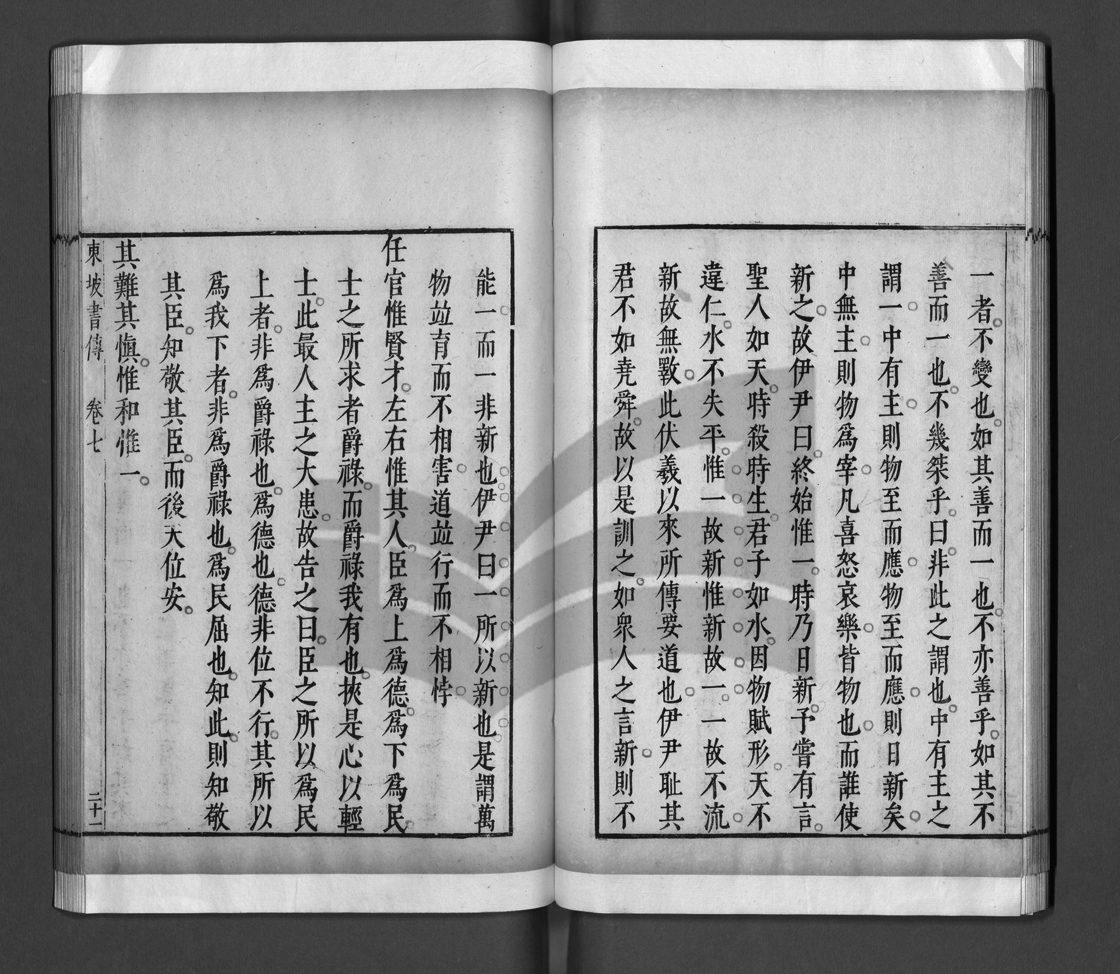 一者不變也如其善而一也不亦善乎如其不
善而一也不幾桀乎曰非此之謂也中有主之
謂一中有主則物至而應物至而應則日新矣
中無主則物爲宰凡喜怒哀樂皆物也而誰使
新之故伊尹曰終始惟一時乃日新予嘗有言
聖人如天時殺時生君子如水因物賦形天不
違仁水不失平惟一故新惟新故一一故不流
新故無斁此伏羲以來所傳要道也伊尹耻其
君不如堯舜故以是訓之如衆人之言新則不
能一而一非新也伊尹曰一所以新也是謂萬
物竝育而不相害道竝行而不相悖
任官惟賢才左右惟其人臣爲上爲德爲下爲民
士之所求者爵祿而爵祿我有也挾是心以輕
士此最人主之大患故告之曰臣之所以爲民
上者非爲爵祿也爲德也德非位不行其所以
爲我下者非爲爵祿也爲民屈也知此則知敬
其臣知敬其臣而後天位安
其難其愼惟和惟一
東坡書傳 卷七 二十一